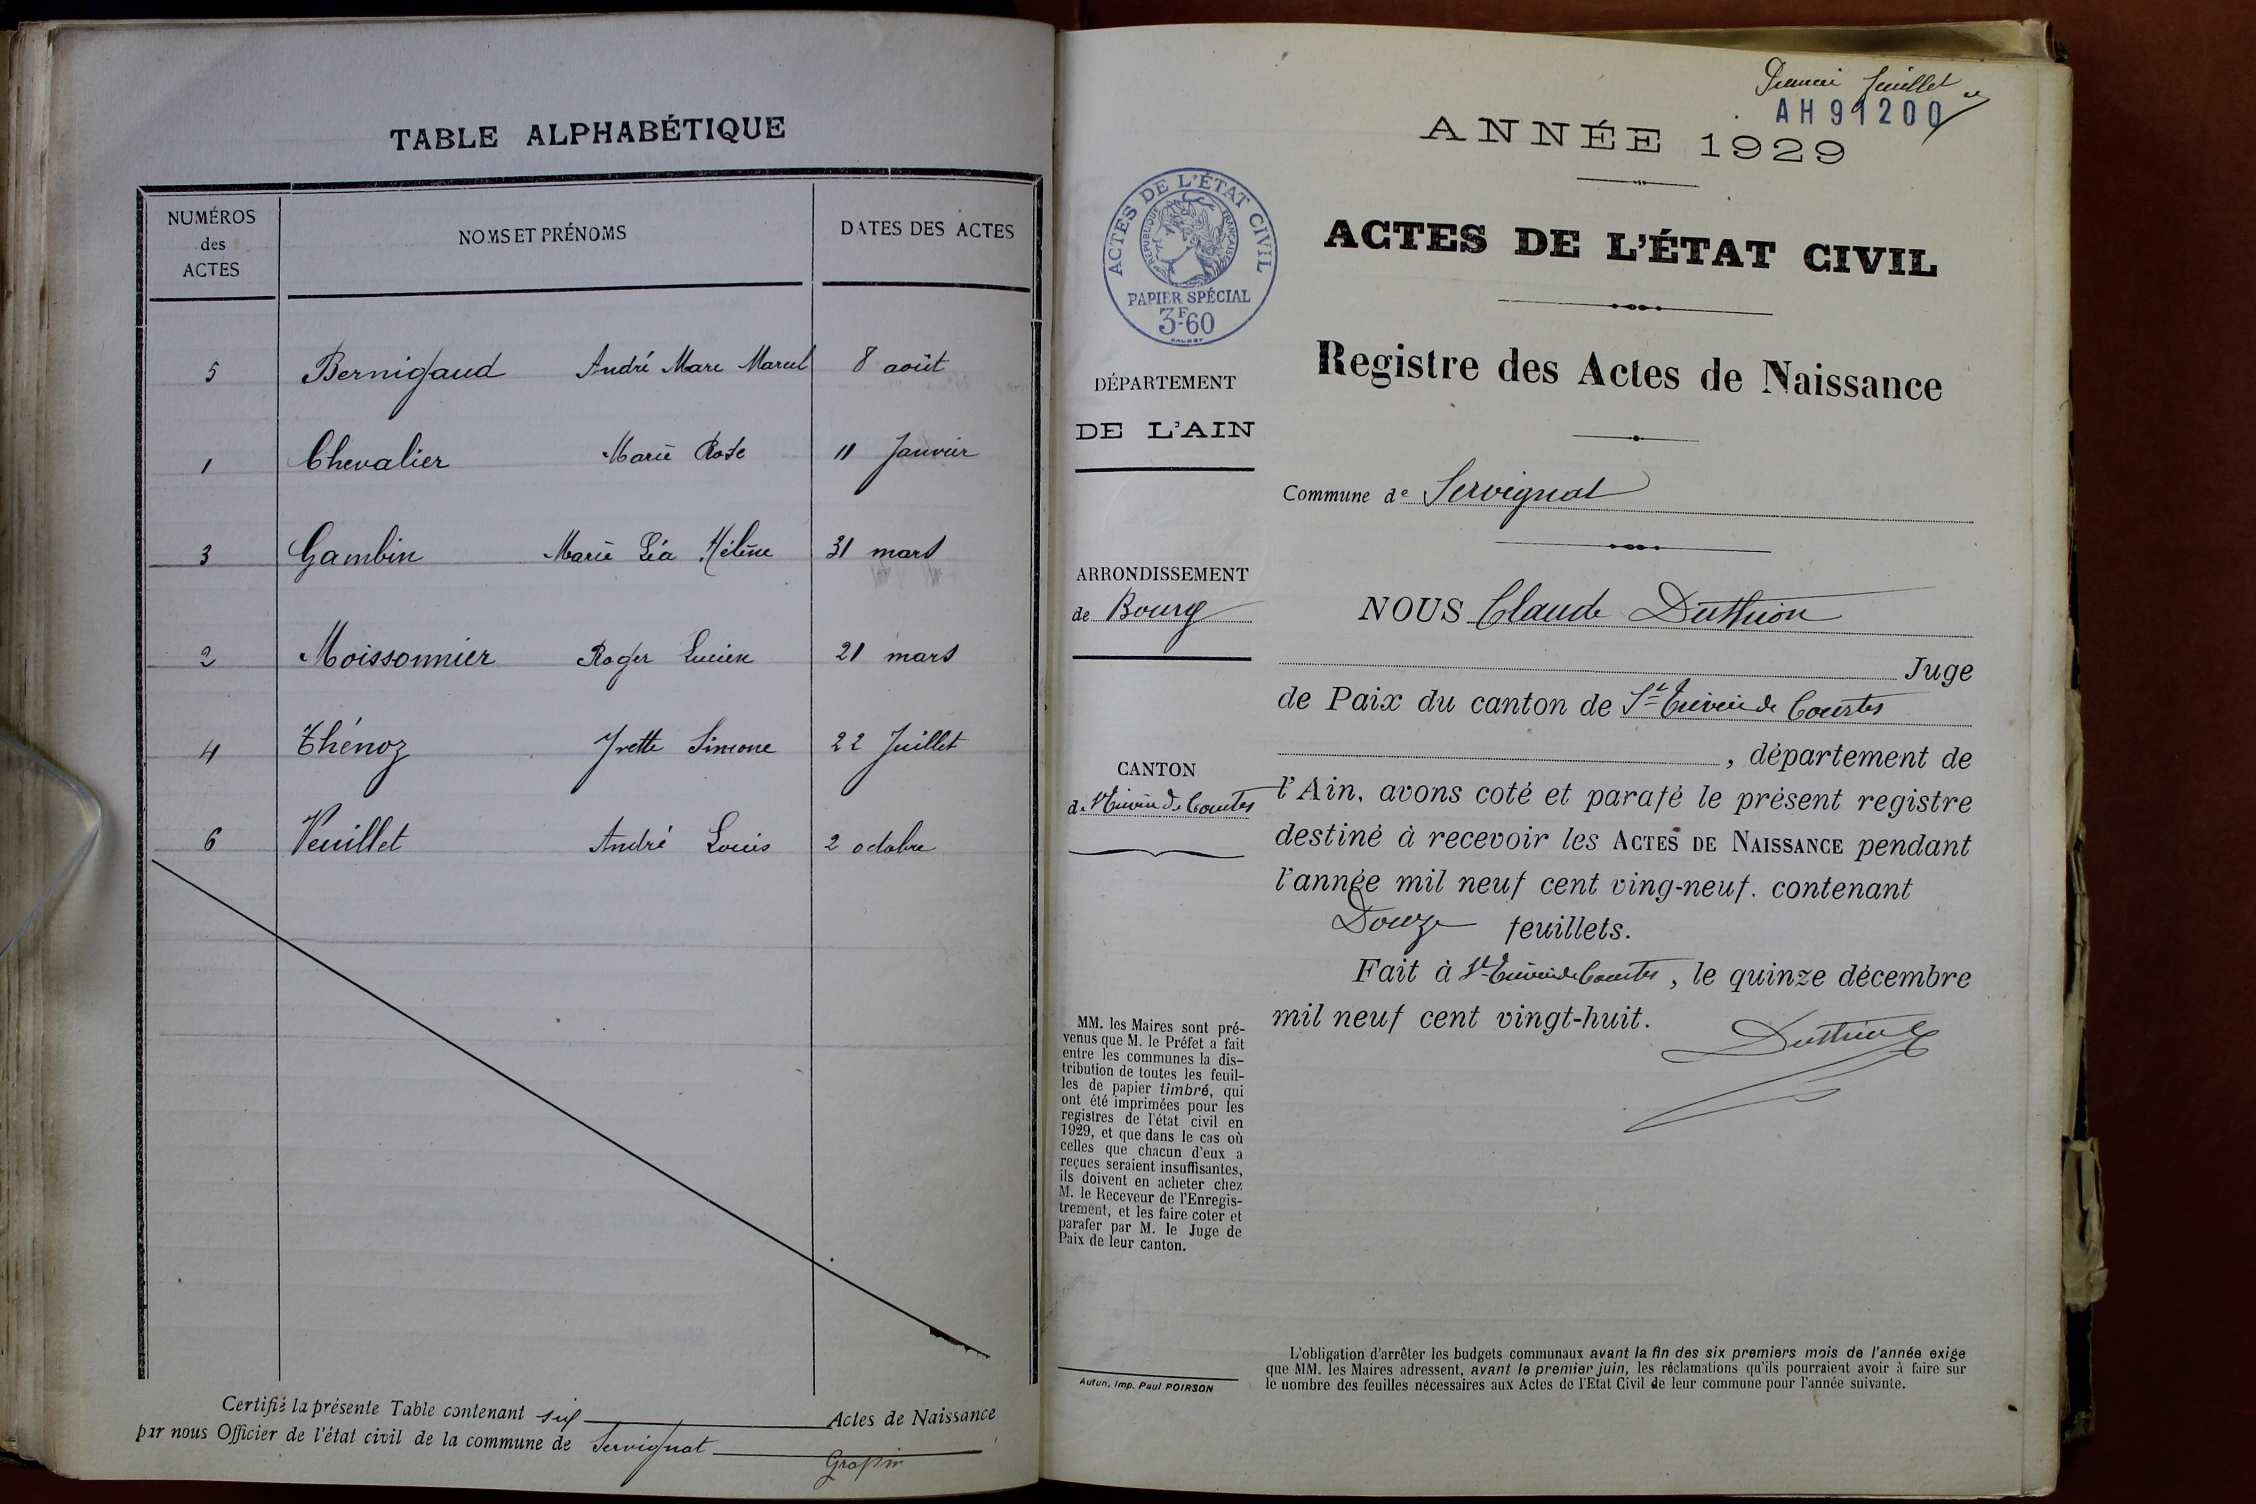 TABLE ALPHABÉTIQUE
NUMÉROS
des
ACTES
NOMS ET PRÉNOMS
DATES DES ACTES
5 Bernigaud André Marc Marcel 8 août
1 Chevalier Marie Rose 11 Janvier
3 Gambin Marie Léa Hélène 31 mars
2 Moissonnier Roger Lucien 21 mars
4 Thénoz Yvette Simone 22 Juillet
6 Veuillet André Louis 2 octobre
Certifié la présente Table contenant six Actes de Naissance
par nous Officier de l'état civil de la commune de Servignat
Premier feuillet
AH 91200
ANNÉE 1929
ACTES DE L'ÉTAT CIVIL
RÉPUBLIQUE FRANÇAISE
PAPIER SPÉCIAL
3F60
ACTES DE L'ÉTAT CIVIL
Registre des Actes de Naissance
DÉPARTEMENT
DE L'AIN
Commune de Servignat
ARRONDISSEMENT
de Bourg
CANTON
de St Trivier de Courtes
NOUS Claude Duthion
Juge
de Paix du canton de St Trivier de Courtes
, département de
l'Ain, avons coté et parafé le présent registre
destiné à recevoir les ACTES DE NAISSANCE pendant
l'année mil neuf cent ving-neuf. contenant
Douze feuillets.
Fait à St Trivier de Courtes, le quinze décembre
mil neuf cent vingt-huit.
Duthion
MM. les Maires sont pré-
venus que M. le Préfet a fait
entre les communes la dis-
tribution de toutes les feuil-
les de papier timbré, qui
ont été imprimées pour les
registres de l'état civil en
1929, et que dans le cas où
celles que chacun d'eux a
reçues seraient insuffisantes,
ils doivent en acheter chez
M. le Receveur de l'Enregis-
trement, et les faire coter et
parafer par M. le Juge de
Paix de leur canton.
Autun, Imp. Paul POIRSON
L'obligation d'arrêter les budgets communaux avant la fin des six premiers mois de l'année exige
que MM. les Maires adressent, avant le premier juin, les réclamations qu'ils pourraient avoir à faire sur
le nombre des feuilles nécessaires aux Actes de l'Etat Civil de leur commune pour l'année suivante.